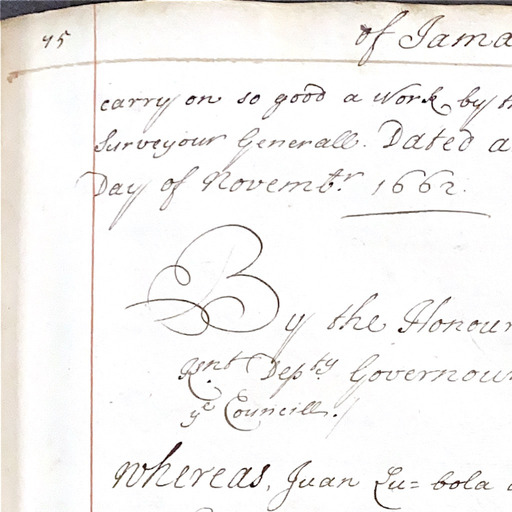 45
of Jama
carry on so good a Work by th
Surveyour Generall. Dated a
Day of Novembr. 1662.
By the Honour
Knt Depty. Governour
ye Councill./
whereas, Juan Lu=bola